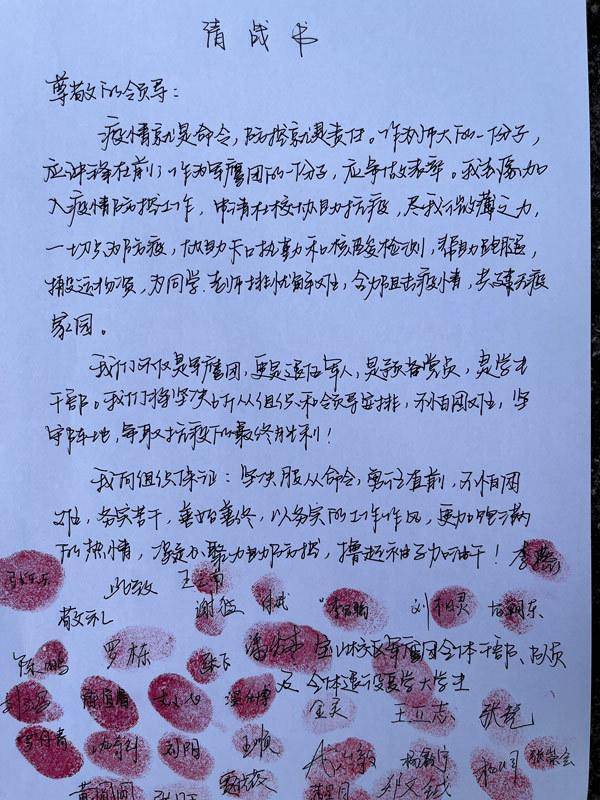 请战书
尊敬的领导：
疫情就是命令，防控就是责任。作为师大的一份子，
应冲锋在前；作为军鹰团的一份子，应争做表率。我志愿加
入疫情防控工作，申请在校协助抗疫，尽我微薄之力，
一切只为防疫，协助卡口执勤和核酸检测，帮助跑腿，
搬运物资，为同学、老师排忧解难，合力阻击疫情，共建无疫
家园。
我们不仅是军鹰团，更是退伍军人，是预备党员，是学生
干部。我们将坚决听从组织和领导安排，不怕困难，坚
守阵地，争取抗疫的最终胜利！
我向组织保证：坚决服从命令，勇往直前，不怕困
难，务实苦干，善始善终，以务实的工作作风，更加饱满
的热情，凝心聚力助防控，撸起袖子加油干！
此致
敬礼
谢
刘
罗栋
陈鹏
校区军鹰团全体干部、队员
及全体退役复学大学生
刘明
王顺
金灵
王立志
张
杨